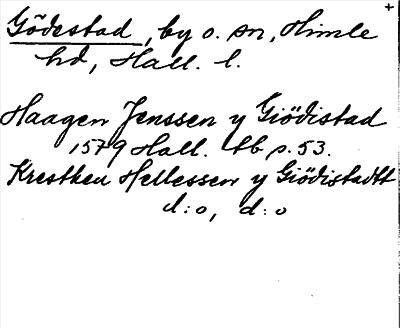 +
Gödestad, by o. sn, Himle
hd, Hall. l.
Haagen Jenssen y Giödistad
1579 Hall. tb s. 53.
Krestken Hellessen y Giödistadtt
d:o, d:o